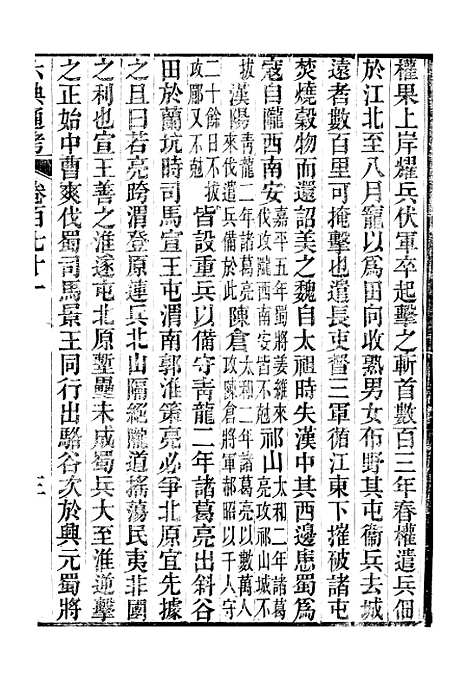 權果上岸耀兵伏軍卒起擊之斬首數百三年春權遣兵佃
於江北至八月寵以爲田向收熟男女布野其屯衞兵去城
遠者數百里可掩擊也遣長吏督三軍循江東下摧破諸屯
焚燒穀物而還詔美之魏自太祖時失漢中其西邊患蜀爲
寇自隴西南安嘉平五年蜀將姜維來伐攻隴西南安皆不尅祁山太和二年諸葛亮攻祁山城不
拔漢陽靑龍二年諸葛亮來伐遣兵備於此陳倉太和二年諸葛亮以數萬人攻陳倉將軍郝昭以千人守
二十餘日不拔攻郿又不尅皆設重兵以備守靑龍二年諸葛亮出斜谷
田於蘭坑時司馬宣王屯渭南郭淮策亮必爭北原宜先據
之且曰若亮跨渭登原連兵北山隔絕隴道搖蕩民夷非國
之利也宣王善之淮遂屯北原塹壘未成蜀兵大至淮逆擊
之正始中曹爽伐蜀司馬景王同行出駱谷次於興元蜀將
六典通考 卷百七十一 三